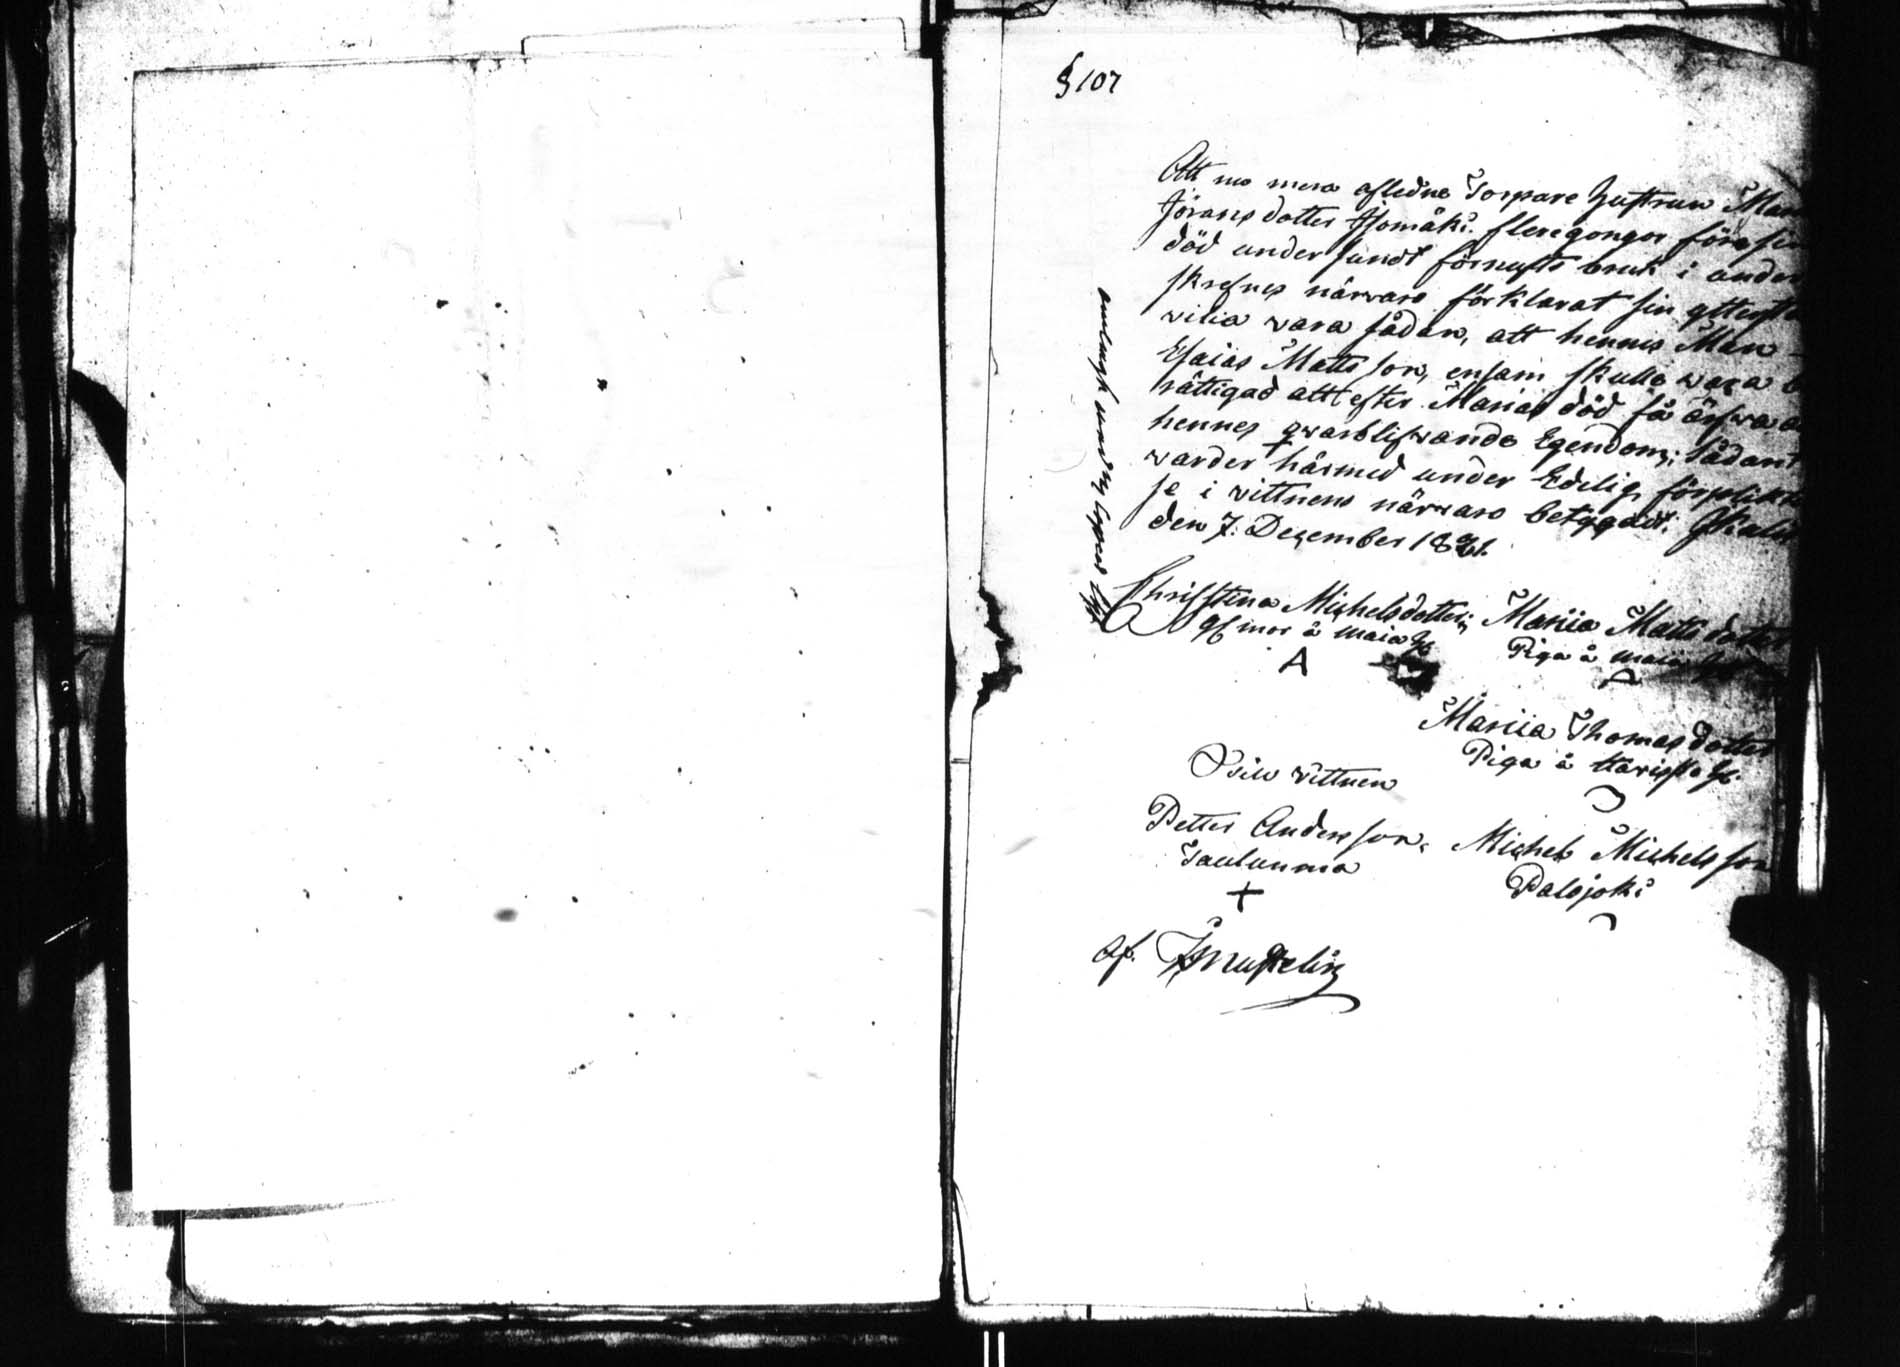 § 107
Att nu mera aflidne Torpare hustrun Maria
Jöransdotter Ajomäki flere gongor före sin
död under sundt förnufts bruk i under
skrefnes närvaro förklarat sin yttersta
vilia vara sådan, att hennes Man
Esaias Mattsson, ensam skulle wara be
rättigad att efter Marias död få ärfwa all
hennes qwarblifwande Egendom; Sådant
warder härmed under Edelig förplicktel
se i vittnens närvaro betygadt.
den 7: December 18
Christina Michelsdotter;
å Maia
A
Mariia Mattsdotter
Piga å Maia
Mariia Thomasdotter
Piga å
Twå Vittnen
Petter Andersson,
Taulunma
+
Michel Michelsson
Palojoki
af.